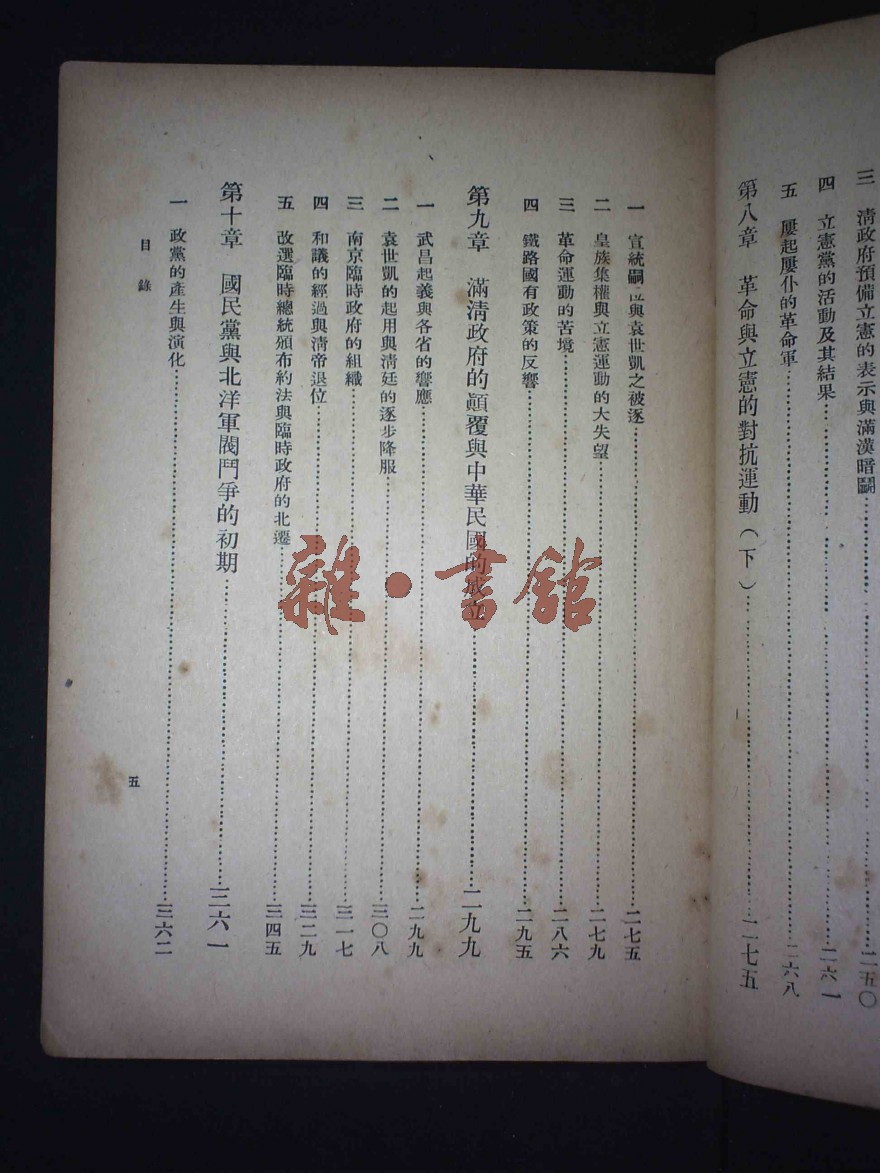 三 清政府預備立憲的表示與滿漢暗鬭……二五〇
四 立憲黨的活動及其結果……二六一
五 屢起屢仆的革命軍……二六八
第八章 革命與立憲的對抗運動(下)……二七五
一 宣統嗣位與袁世凱之被逐……二七五
二 皇族集權與立憲運動的大失望……二七九
三 革命運動的苦境……二八六
四 鐵路國有政策的反響……二九五
第九章 滿淸政府的顚覆與中華民國的成立……二九九
一 武昌起義與各省的響應……二九九
二 袁世凱的起用與淸廷的逐步降服……三〇八
三 南京臨時政府的組織……三一七
四 和議的經過與淸帝退位……三二九
五 改選臨時總統頒布約法與臨時政府的北遷……三四五
第十章 國民黨與北洋軍閥鬥爭的初期……三六一
一 政黨的產生與演化……三六二
目錄
五
雜·書館